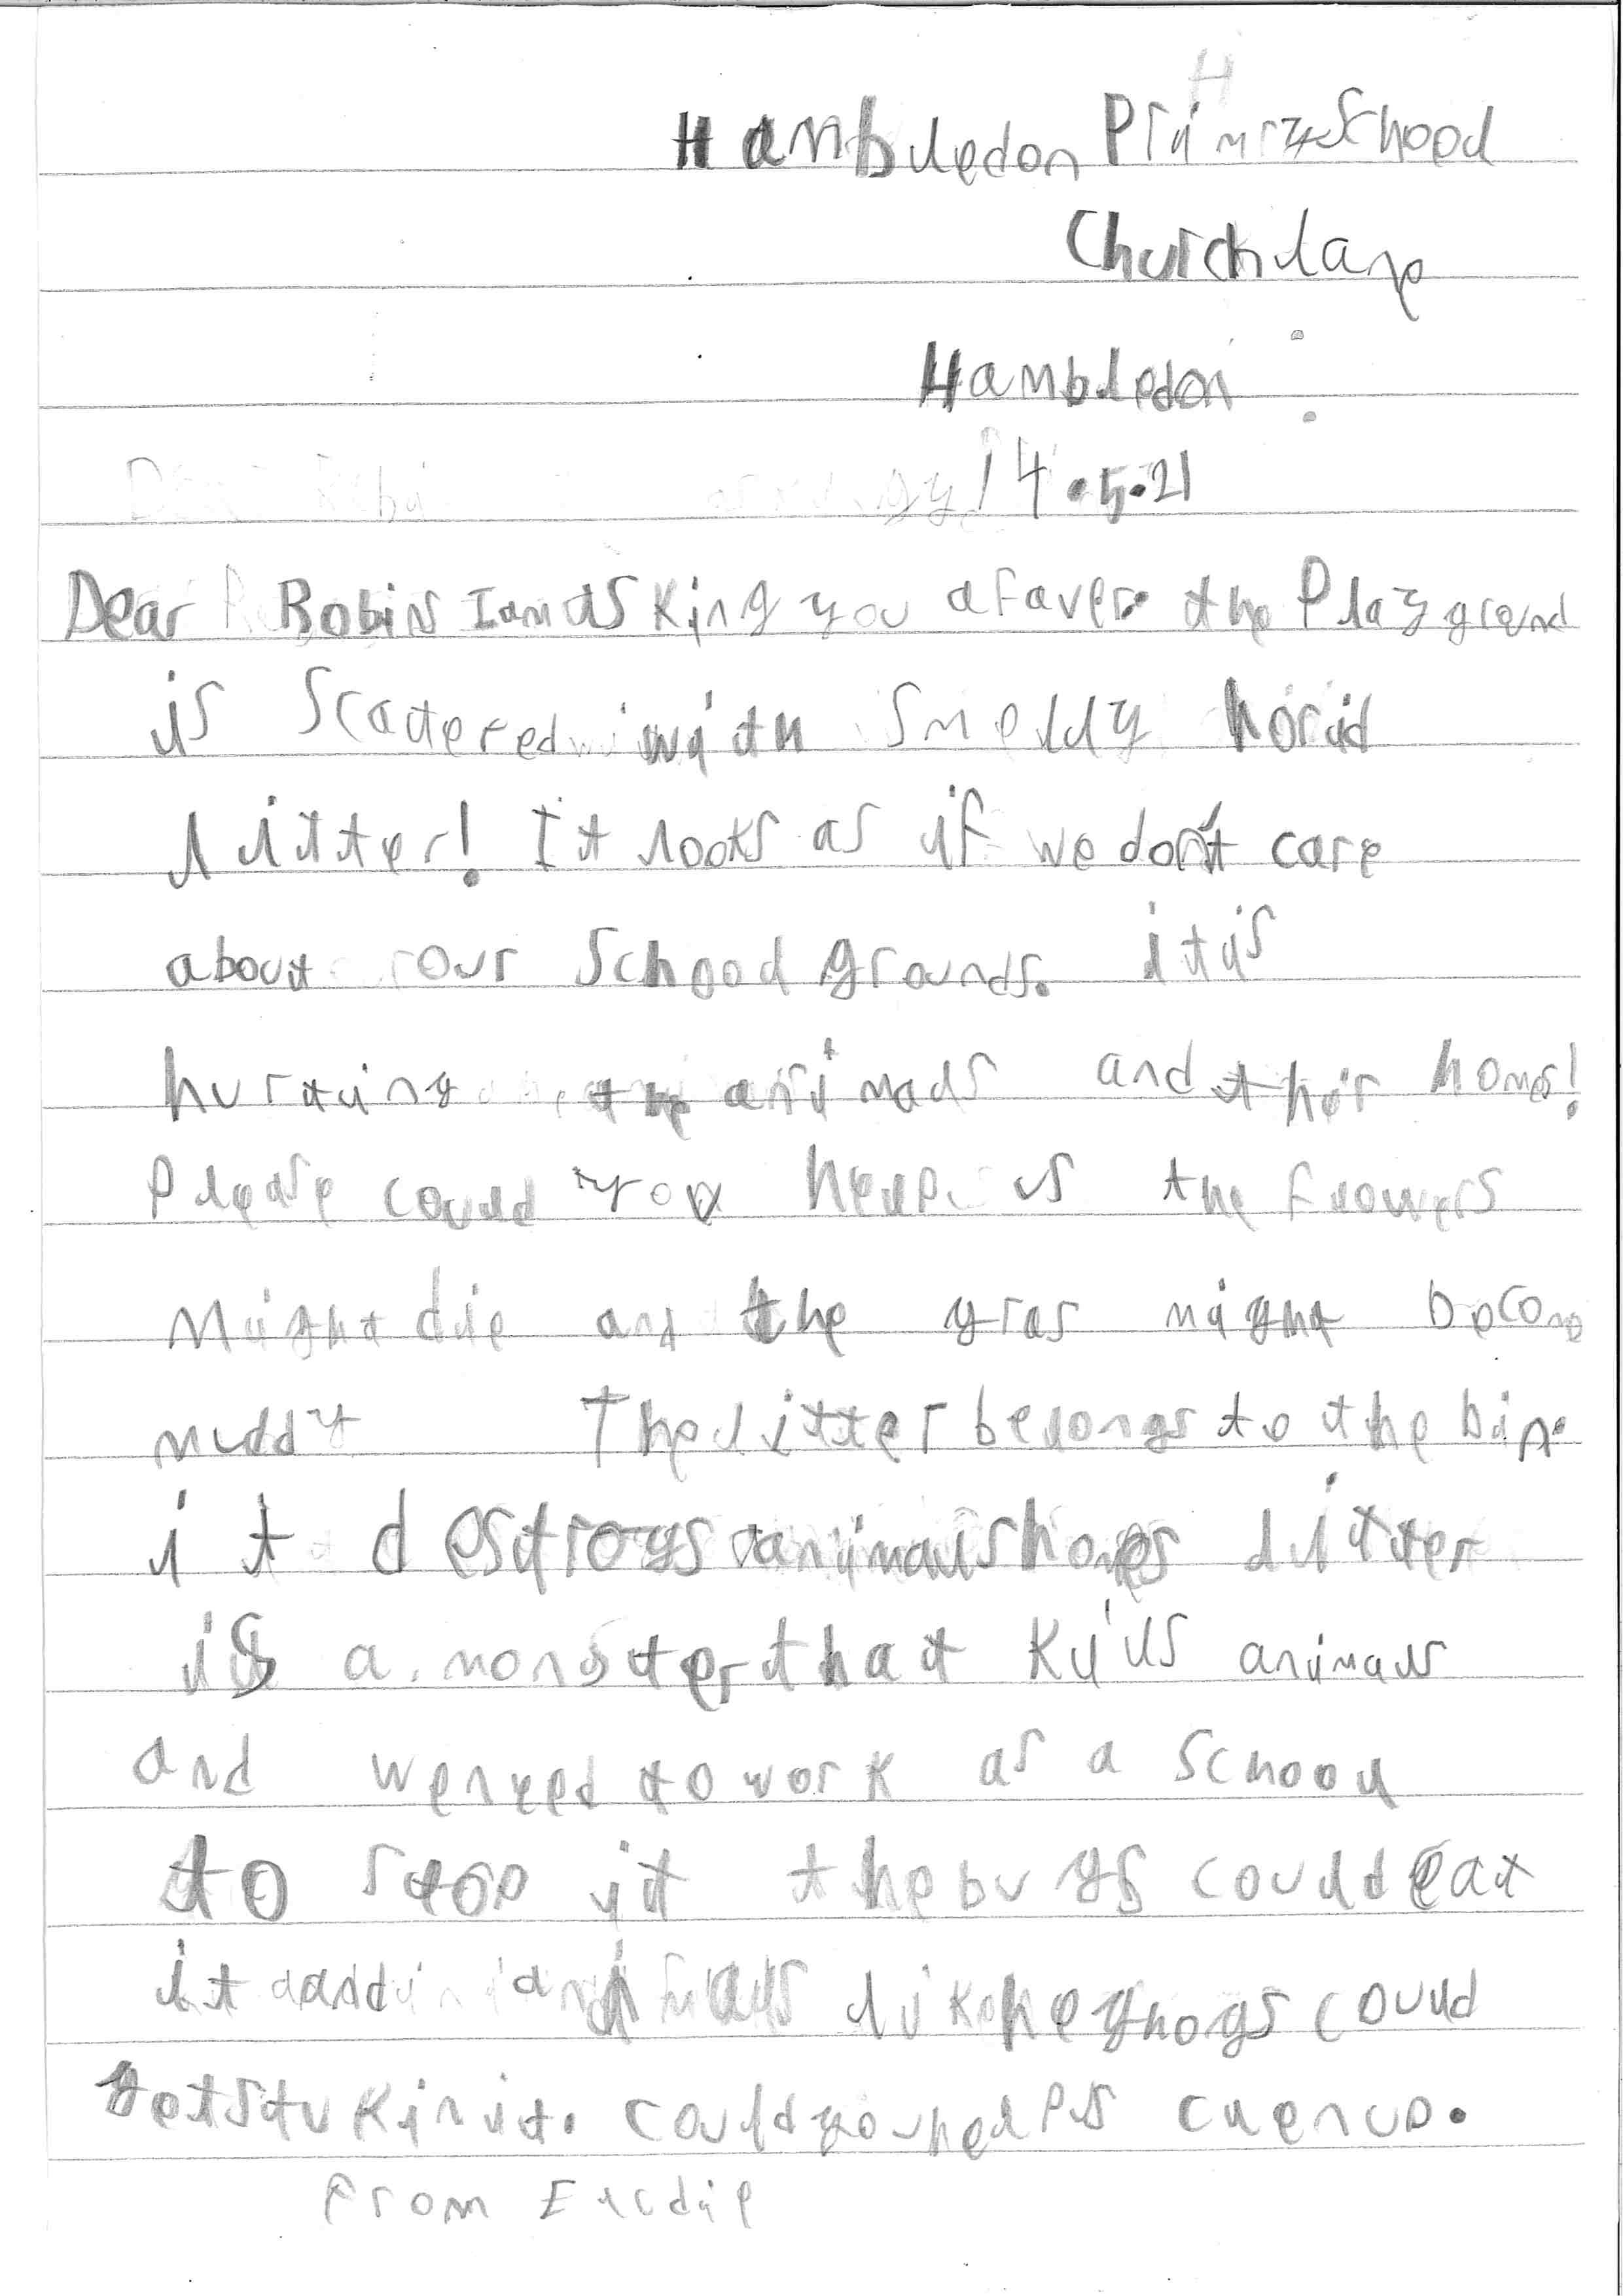 Hambledon Primry School
Church lane
Hambledon
14.5.21
Dear Robin I am asking you a faver. the Playground
is scatered with smelly horid
litter! It looks as if we don't care
about our school grounds. it is
hurting the animals and thir homes!
Please could you help us the flowers
might die and the gras might become
muddy The litter belongs to the bin.
it destroys animals homes litter
is a monster that kills animals
and we need to work as a school
to stop it the bugs could eat
it and animals like heghogs could
get stuk in it. could you help us clen up.
From